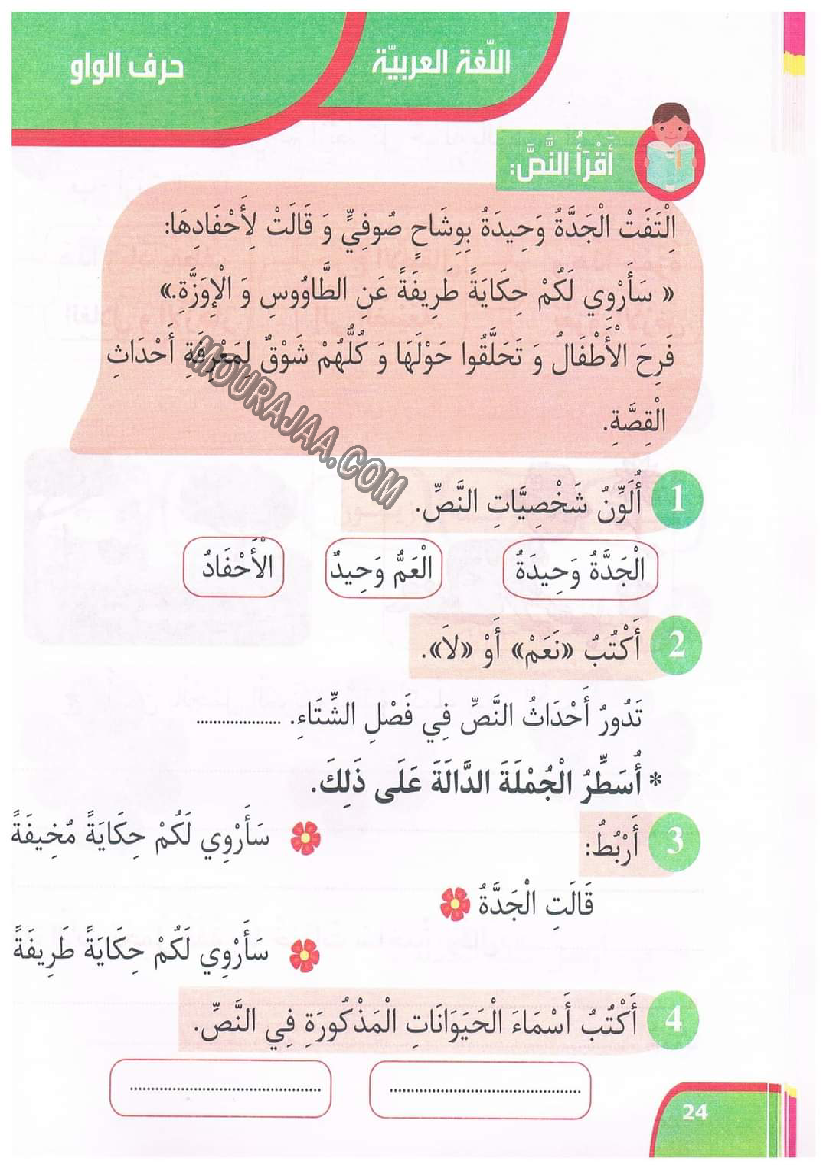 اللّغة العربيّة
حرف الواو
أَقْرَأُ النَّصَّ:
اِلْتَفَتْ الْجَدَّةُ وَحِيدَةُ بِوِشَاحٍ صُوفِيٍّ وَ قَالَتْ لِأَحْفَادِهَا:
« سَأَرْوِي لَكُمْ حِكَايَةً طَرِيفَةً عَنِ الطَّاوُوسِ وَ الْإِوَزَّة.»
فَرِحَ الْأَطْفَالُ وَ تَحَلَّقُوا حَوْلَهَا وَ كُلُّهُمْ شَوْقٌ لِمَعْرِفَةِ أَحْدَاثِ
الْقِصَّةِ.
MOURAJAA.COM
1 أُلَوِّنُ شَخْصِيَّاتِ النَّصِّ.
الْجَدَّةُ وَحِيدَةُ
الْعَمُّ وَحِيدٌ
الْأَحْفَادُ
2 أَكْتُبُ «نَعَمْ» أَوْ «لاَ».
تَدُورُ أَحْدَاثُ النَّصِّ فِي فَصْلِ الشِّتَاءِ. .....................
* أُسَطِّرُ الْجُمْلَةَ الدَّالَةَ عَلَى ذَلِكَ.
3 أَرْبُطُ:
سَأَرْوِي لَكُمْ حِكَايَةً مُخِيفَةً
قَالَتِ الْجَدَّةُ
سَأَرْوِي لَكُمْ حِكَايَةً طَرِيفَةً
4 أَكْتُبُ أَسْمَاءَ الْحَيَوَانَاتِ الْمَذْكُورَةِ فِي النَّصِّ.
24